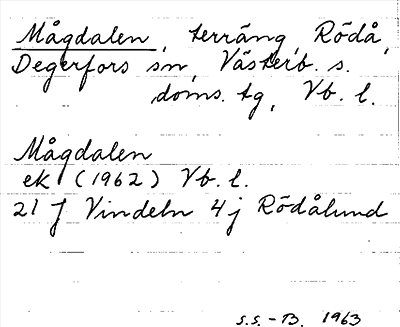 Mågdalen, terräng, Rödå,
Degerfors sn, Västerb. s.
doms. tg, Vb. l.
Mågdalen
ek (1962) Vb. l.
21 J Vindeln 4j Rödålund
S.S.-B. 1963